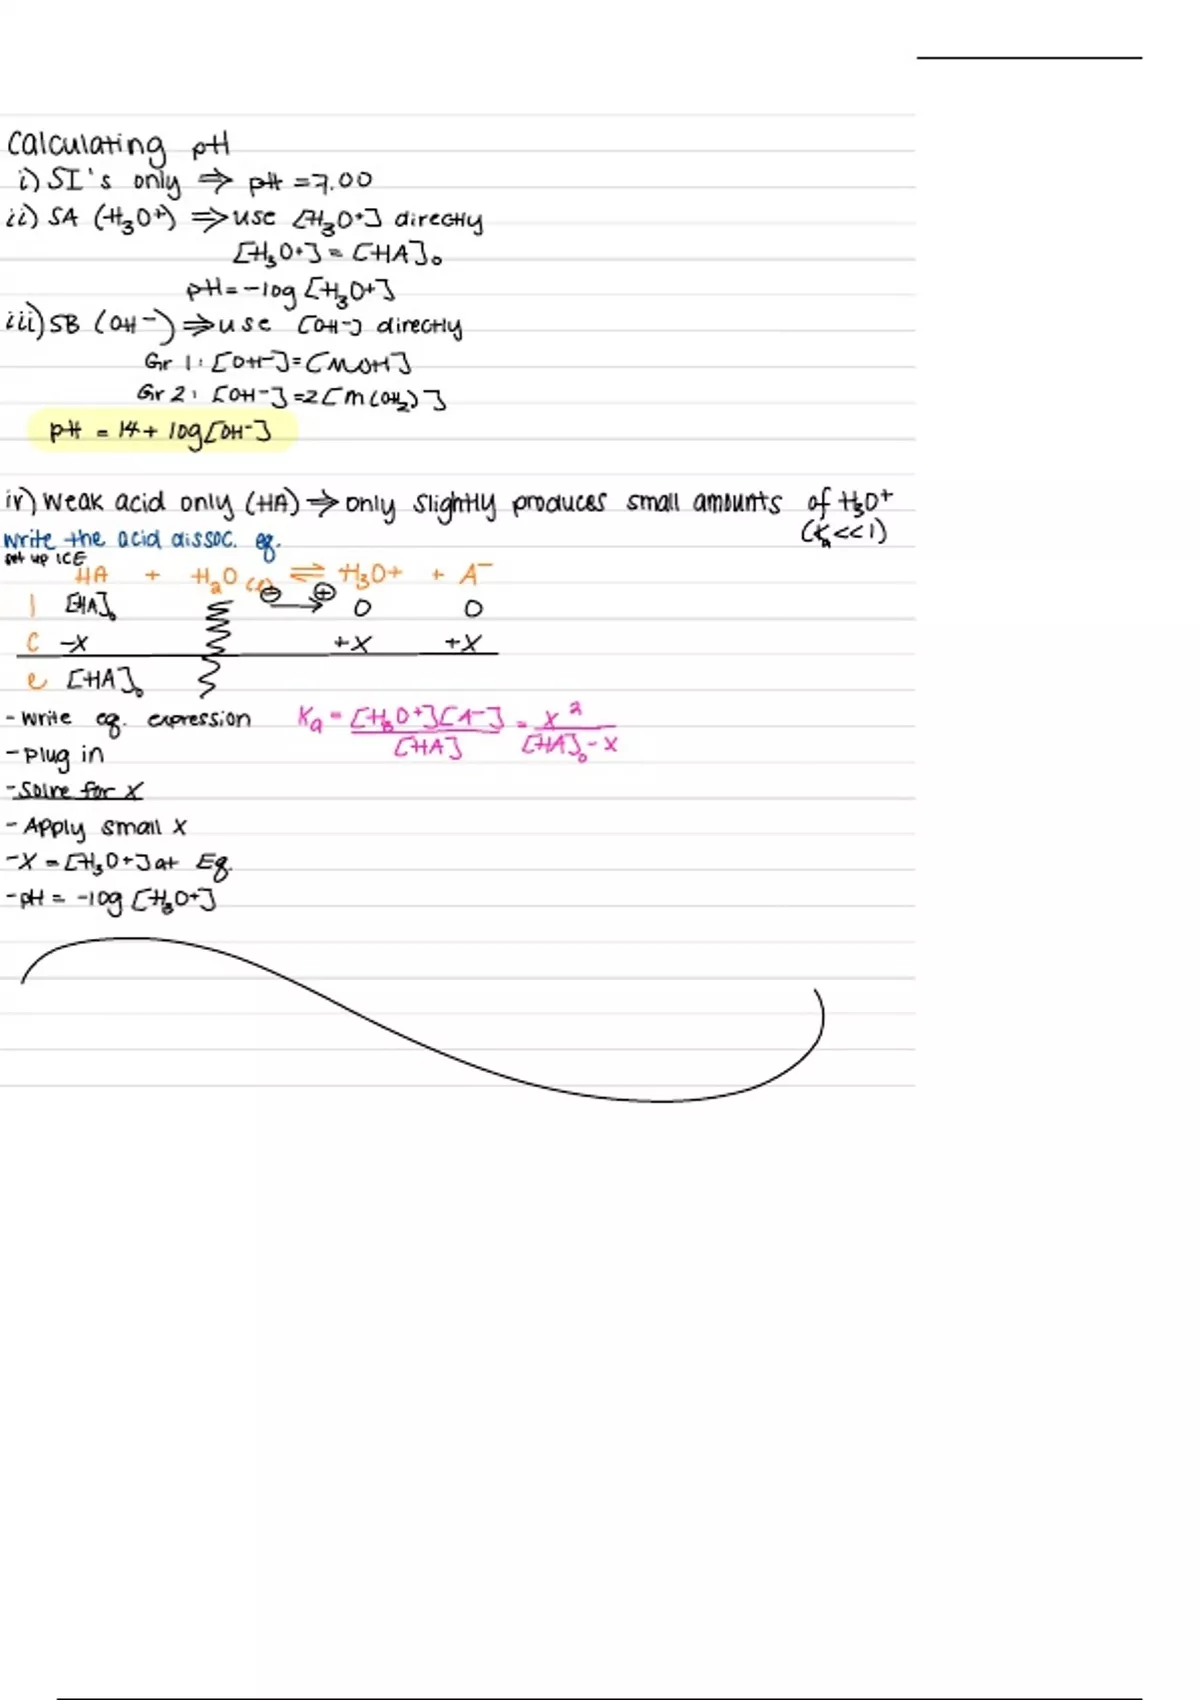 Calculating pH
i) SI's only ⇒ pH = 7.00
ii) SA (H3O+) ⇒ use [H3O+] directly
[H3O+] = [HA]o
pH = -log [H3O+]
iii) SB (OH-) ⇒ use [OH-] directly
Gr 1: [OH-] = [MOH]
Gr 2: [OH-] = 2[M(OH2)]
pH = 14 + log[OH-]
iv) Weak acid only (HA) ⇒ only slightly produces small amounts of H3O+
(Ka<<1)
write the acid dissoc. eq.
set up ICE
HA + H2O (l) ⇌ H3O+ + A-
I [HA]o ⊖ → ⊕ 0 0
C -X +X +X
e [HA]o
- Write eq. expression Ka = [H3O+][A-] / [HA] = x² / [HA]o - x
- Plug in
- Solve for X
- Apply small X
- X = [H3O+] at Eq.
- pH = -log [H3O+]